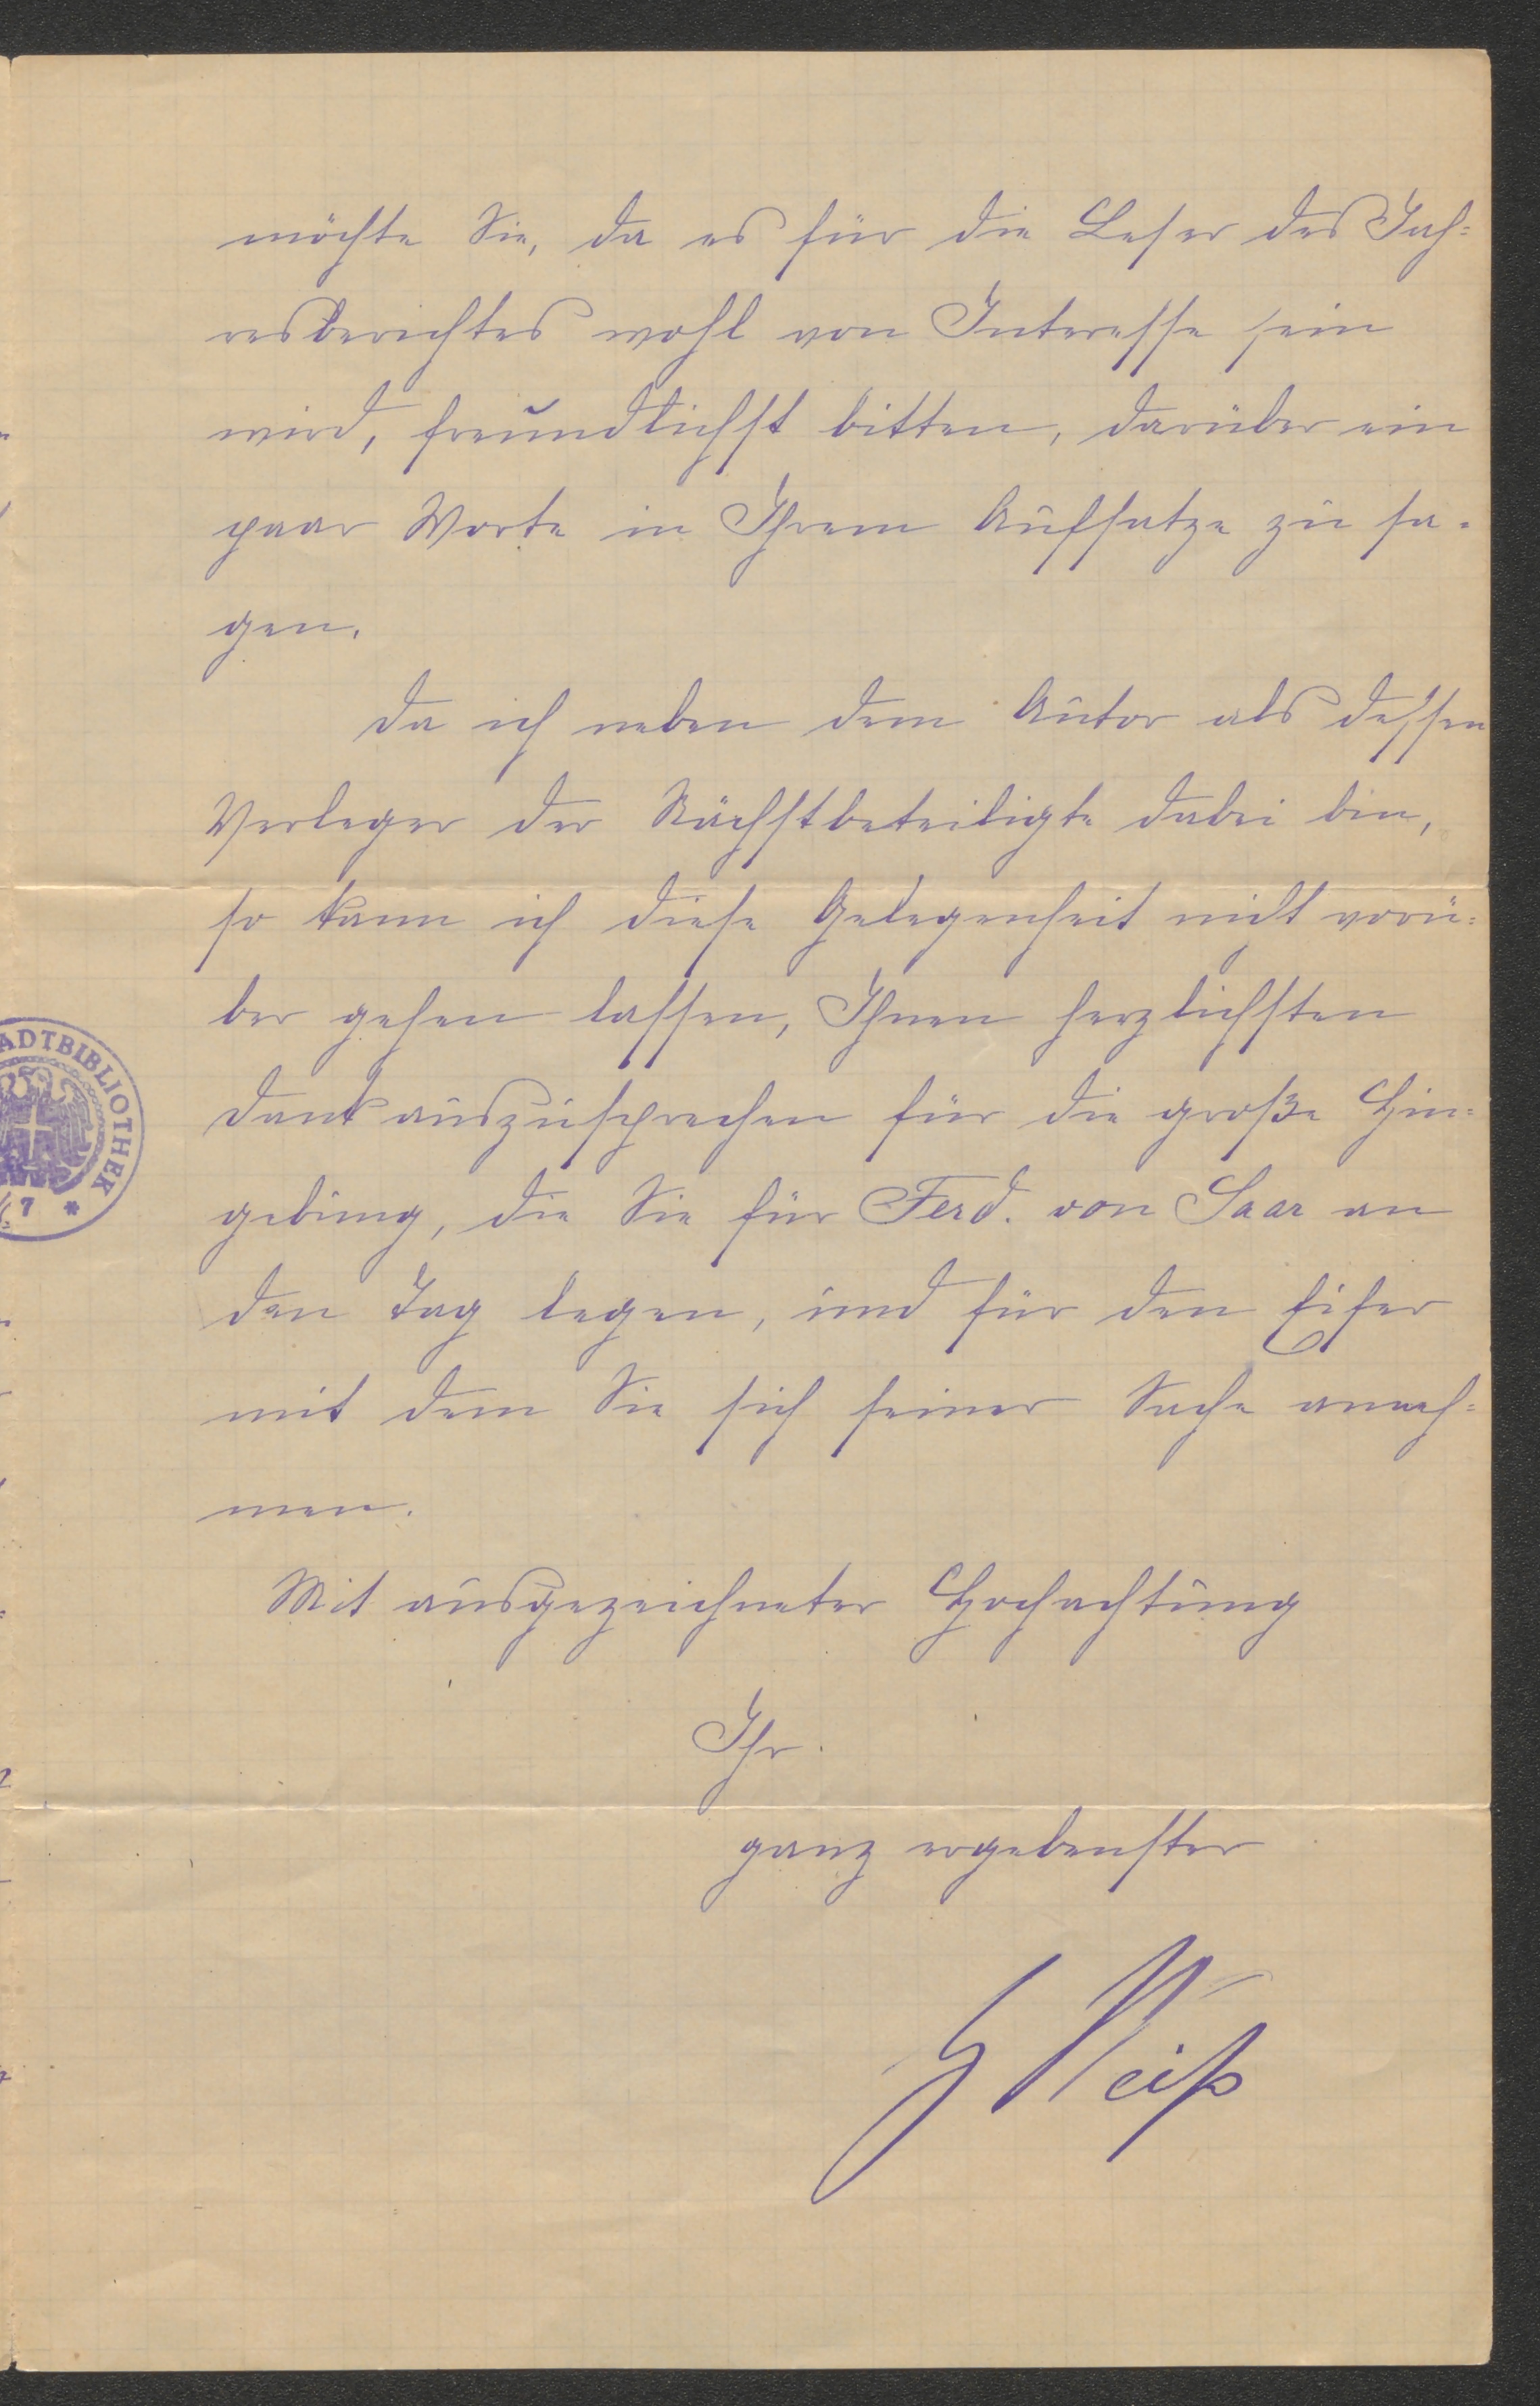 möchte Sie, da es für die Leser des Jah=
resberichtes wohl von Interesse sein
wird, freundlichst bitten, darüber ein
paar Worte in Ihrem Aufsatze zu sa=
gen.
Da ich neben dem Autor als dessen
Verleger der Nächstbeteiligte dabei bin,
so kann ich diese Gelegenheit nicht vorü=
ber gehen lassen, Ihnen herzlichsten
Dank auszusprechen für die große Hin=
gebung, die Sie für Ferd. von Saar an
den Tag legen, und für den Eifer
mit dem Sie sich seiner Sache anneh=
men.
Mit ausgezeichneter Hochachtung
Ihr
ganz ergebenster
G Weiß
ADTBIBLIOTHEK
7 *